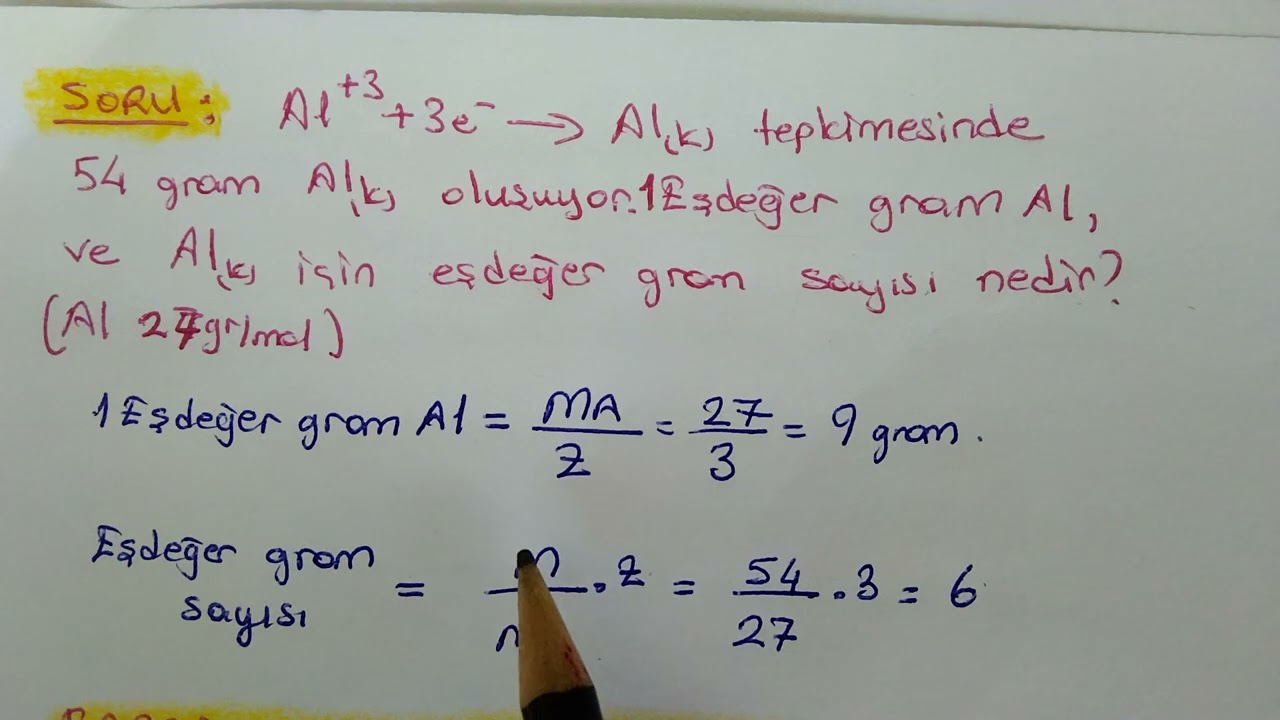 SORU: Al⁺³ + 3e⁻ → Al(k) tepkimesinde
54 gram Al(k) oluşuyor. 1 Eşdeğer gram Al,
ve Al(k) için eşdeğer gram sayısı nedir?
(Al 27 gr/mol)
1 Eşdeğer gram Al = MA/Z = 27/3 = 9 gram.
Eşdeğer gram sayısı = m/ . z = 54/27 . 3 = 6